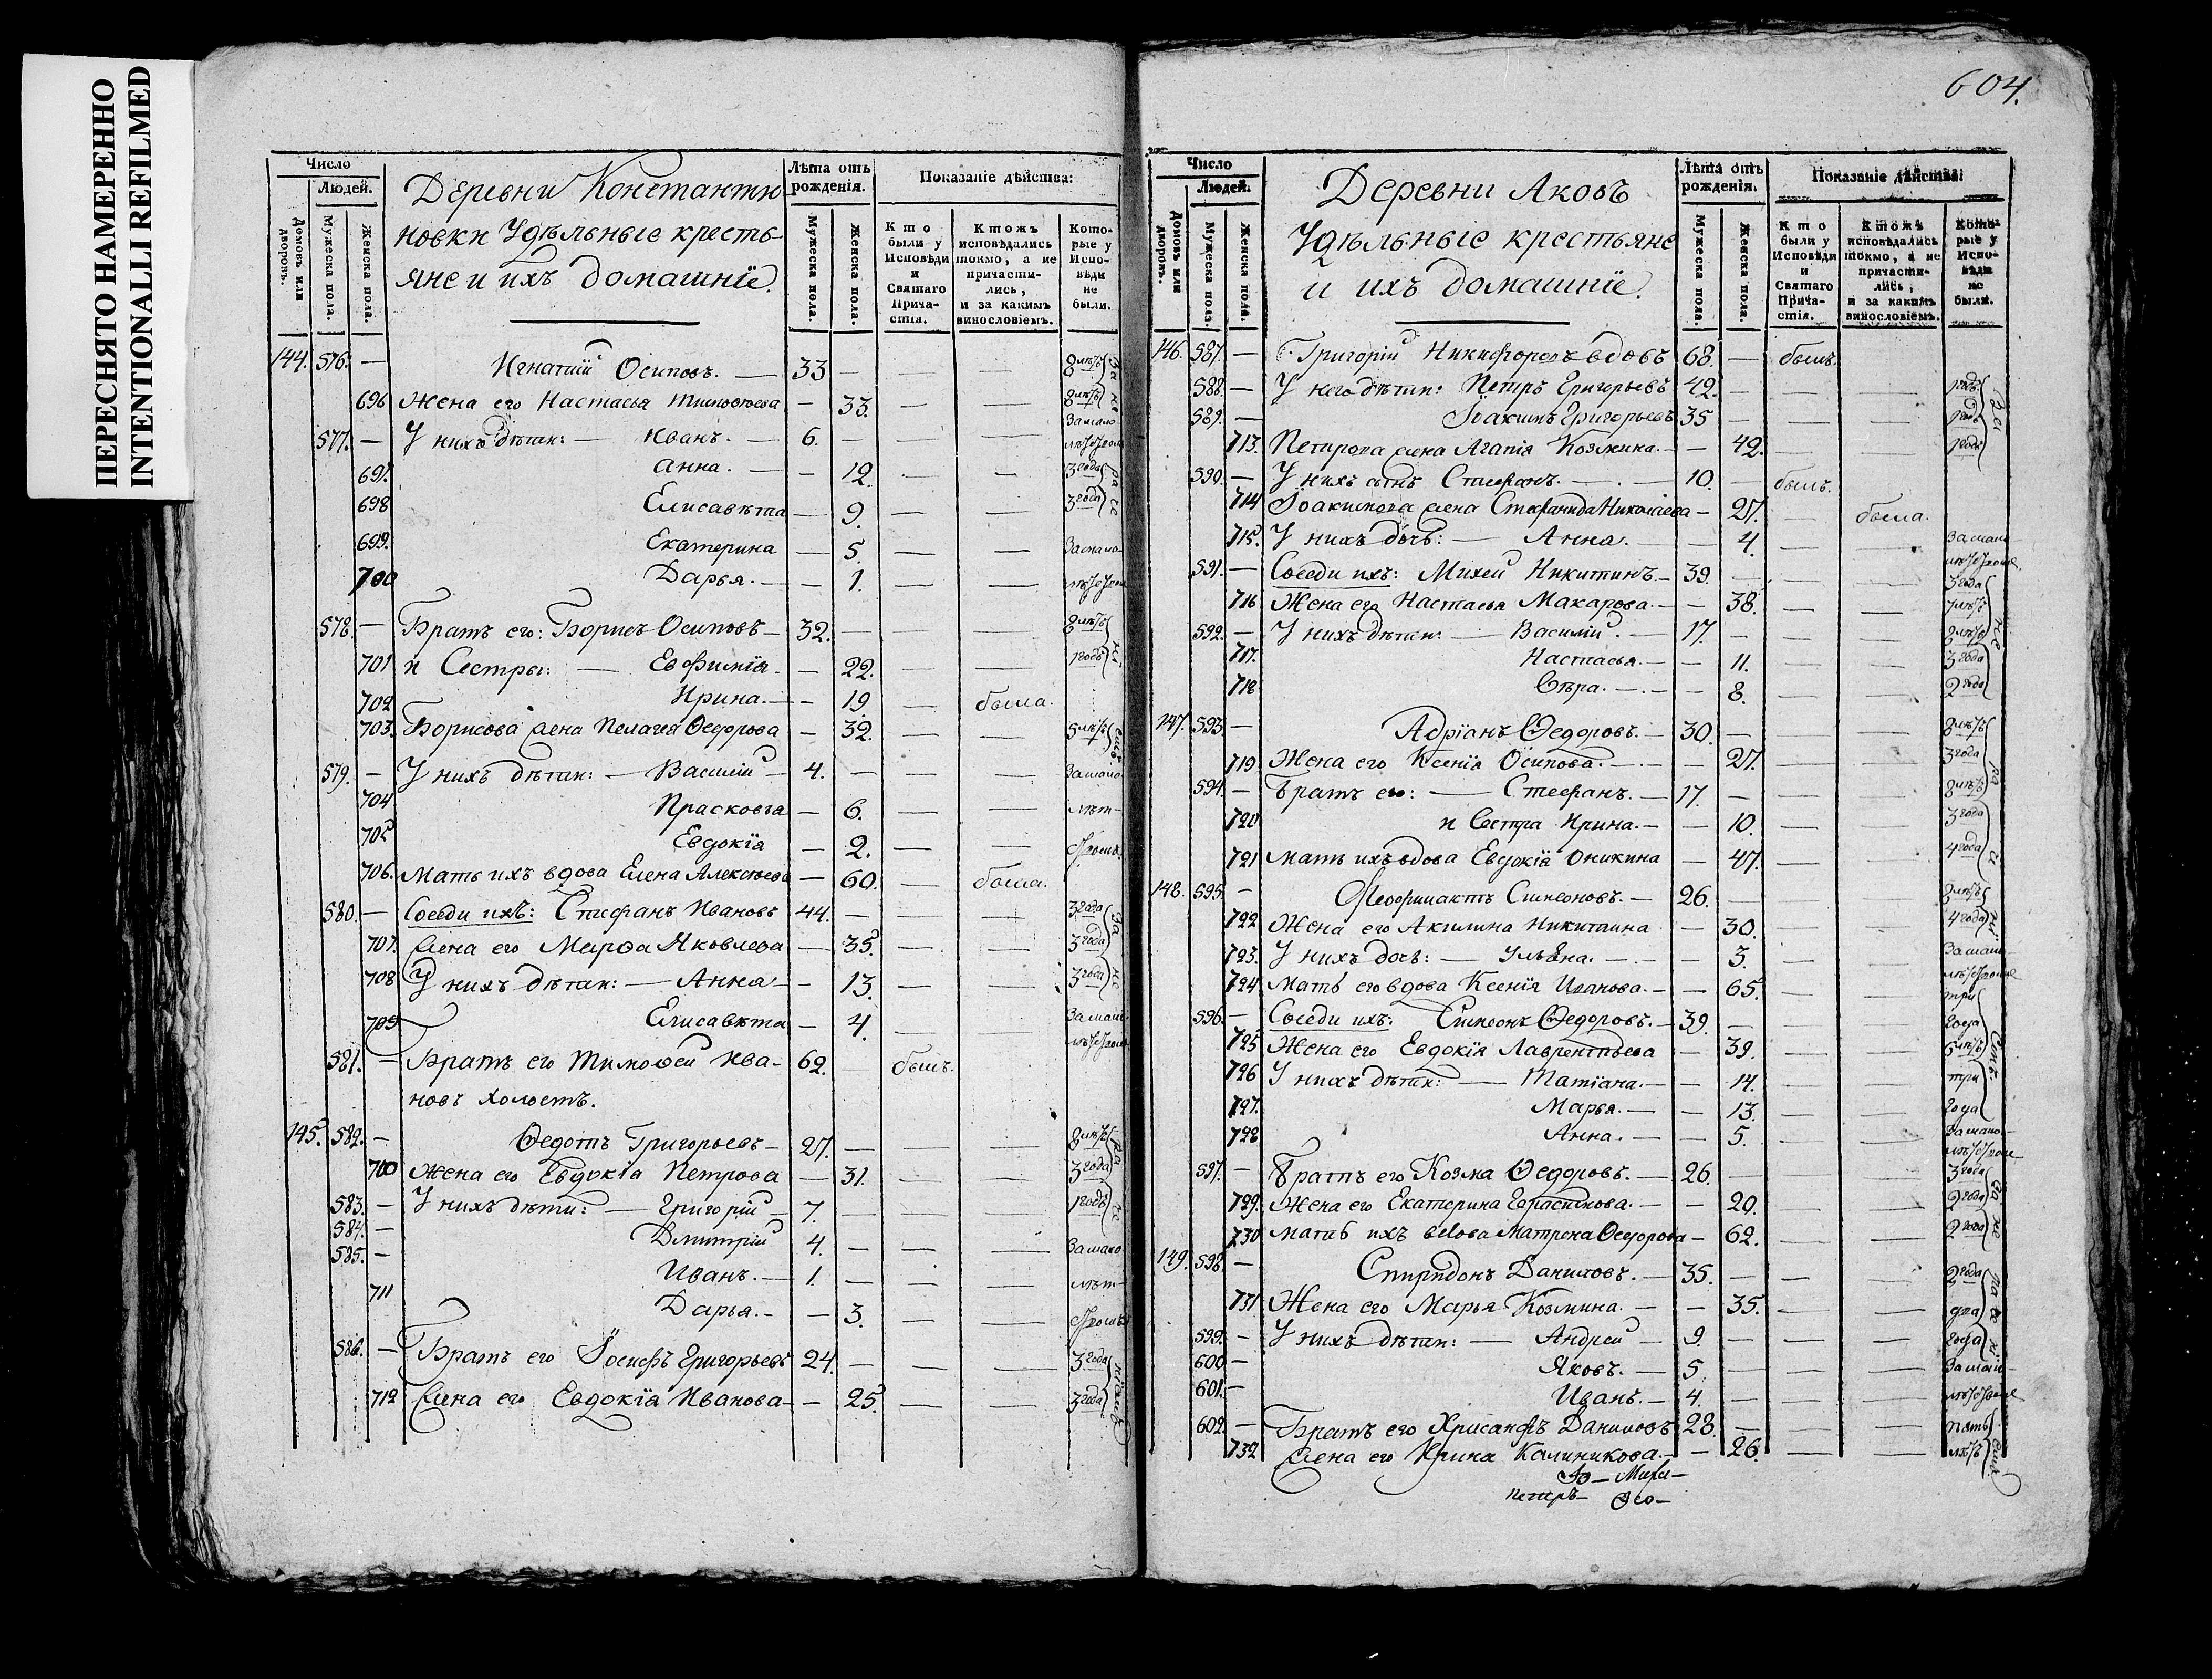 ПЕРЕСНЯТО НАМЕРЕННО
INTENTIONALLI REFILMED
Число
Людей.
Домовъ или дворовъ.
Мужеска пола.
Женска пола.
Деревни Константи
новки Удѣльные кресть-
яне и ихъ домашнїе.
Лѣта отъ рожденія.
Мужеска пола.
Женска пола.
Показаніе дѣйства:
Кто были у Исповѣди и Святаго Прича-стія.
Ктожъ исповѣдались токмо, а не причасти-лись, и за какимъ винословіемъ.
Кото-рые у Испо-вѣди не были.
144. 576. — Игнатий Осиповъ. — 33 — — — 8 лѣтъ
696 Жена его Настасья Тимофѣева — 33. — — 8 лѣтъ
577. — У нихъ дѣти: — Иванъ. — 6. — — — За мало
697. Анна. — — 12. — — 3 года
698 Елисавѣта — 9. — — 3 года
699. Екатерина — 5. — — За мало-
700 Дарья. — — 1. — —
578. — Братъ его: Борисъ Осиповъ — 32. — — — 8 лѣтъ
701 и Сестры: — Евфимїя. — — 22. — — 1 годъ
702 Ирина. — — 19 — была.
703. Борисова жена Пелагея Ѳеодорова — 32. — — 5 лѣтъ
579. — У нихъ дѣти: — Василий — 4. — — — За мало
704 Прасковья — 6. — — лѣт-
705 Евдокїя — 2. — —
706. Мать ихъ вдова Елена Алексѣева — 60. — была.
580. — Соседи ихъ: Стефанъ Ивановъ 44. — — — 3 года
707. Жена его Марѳа Яковлева — 35. — — 3 года
708 У нихъ дѣти: — Анна — — 13. — — 3 года
709 Елисавѣта — 4. — — За мало-
581. — Братъ его Тимоѳеи Ива- 62. — былъ.
новъ холостъ.
145. 582. — Ѳедотъ Григорьевъ — 27. — — — 8 лѣтъ
700 Жена его Евдокїа Петрова — 31. — — 3 года
583. — У нихъ дѣти: — Григорий — 7. — — — 1 годъ
584. — Дмитрий 4. — — — За мало
585. — Иванъ. — 1. — — — лѣт-
711 Дарья. — — 3. — —
586. — Братъ его Іосифъ Григорьевъ 24. — — — 3 года
712 Жена его Евдокїя Иванова — — 25. — — 3 года
604.
Число
Людей.
Домовъ или дворовъ.
Мужеска пола.
Женска пола.
Деревни Аковъ
Удѣльные крестьяне
и ихъ домашнїе.
Лѣта отъ рожденія.
Мужеска пола.
Женска пола.
Показаніе дѣйства:
Кто были у Исповѣди и Святаго Прича-стія.
Ктожъ исповѣдались токмо, а не причасти-лись, и за какимъ винословіемъ.
Кото-рые у Испо-вѣди не были.
146. 587. — Григорий Никифоровъ вдовъ 68. — былъ.
588. — У него дѣти: Петръ Григорьевъ 42. — — — годъ
589. — Іоакимъ Григорьевъ 35 — — — годъ
713. Петрова жена Агапїя Козмина. — — 42. — — 1 годъ
590. — У нихъ сынъ Стефанъ. — 10. — былъ.
714 Іоакимова жена Стефанида Николаева — 27. — была.
715. У нихъ дочь: — Анна. — 4. — — За мало
591. — Соседи ихъ: Михеи Никитинъ — 39. — — — 3 года
716 Жена его Настасья Макарова. — — 38. — — 7 лѣтъ
592. — У нихъ дѣти: — Василий. — 17. — — — 8 лѣтъ
717. Настасья. — — 11. — — 3 года
718 Вѣра. — — 8. — — 2 года
147. 593. — Адрїанъ Ѳедоровъ. — 30. — — — 8 лѣтъ
719 Жена его Ксенїя Осипова. — — 27. — — 3 года
594. — Братъ его: — Стефанъ. — 17. — — — 8 лѣтъ
720 и Сестра Ирина. — — 10. — — 3 года
721 Мать ихъ вдова Евдокїя Оникина — 47. — — 4 года
148. 595. — Ѳеофилактъ Симеоновъ. — 26. — — — 8 лѣтъ
722 Жена его Акилина Никитина — 30. — — 4 года
723. У нихъ дочь: — Ульяна. — — 3. — — За мало
724 Мать его вдова Ксенїя Иванова. — — 65. — — три
596. — Соседи ихъ: Симеонъ Ѳедоровъ. — 39. — — — года
725 Жена его Евдокїя Лаврентьева — 39. — — 6 лѣтъ
726 У нихъ дѣти: — Татїана. — — 14. — — три
727. Марья. — — 13. — — года
728 Анна. — — 5. — — За мало-
597. — Братъ его Козма Ѳеодоровъ. — 26. — — — 3 года
729. Жена его Екатерина Герасимова. — — 20. — — 2 года
730 Мать ихъ вдова Матрена Ѳеодорова — 62. — — 2 года
149. 598. — Спиридонъ Даниловъ. — 35. — — — 2 года
731 Жена его Марья Козмина. — — 35. — — два
599. — У нихъ дѣти: — Андреи — 9. — — — года
600 — Яковъ. — 5. — — — За мало-
601. — Иванъ. — 4. — — —
602. — Братъ его Хрисанфъ Даниловъ 28. — — — пять
732 Жена его Ирина Калиникова. — — 26. — — лѣтъ
Петръ —